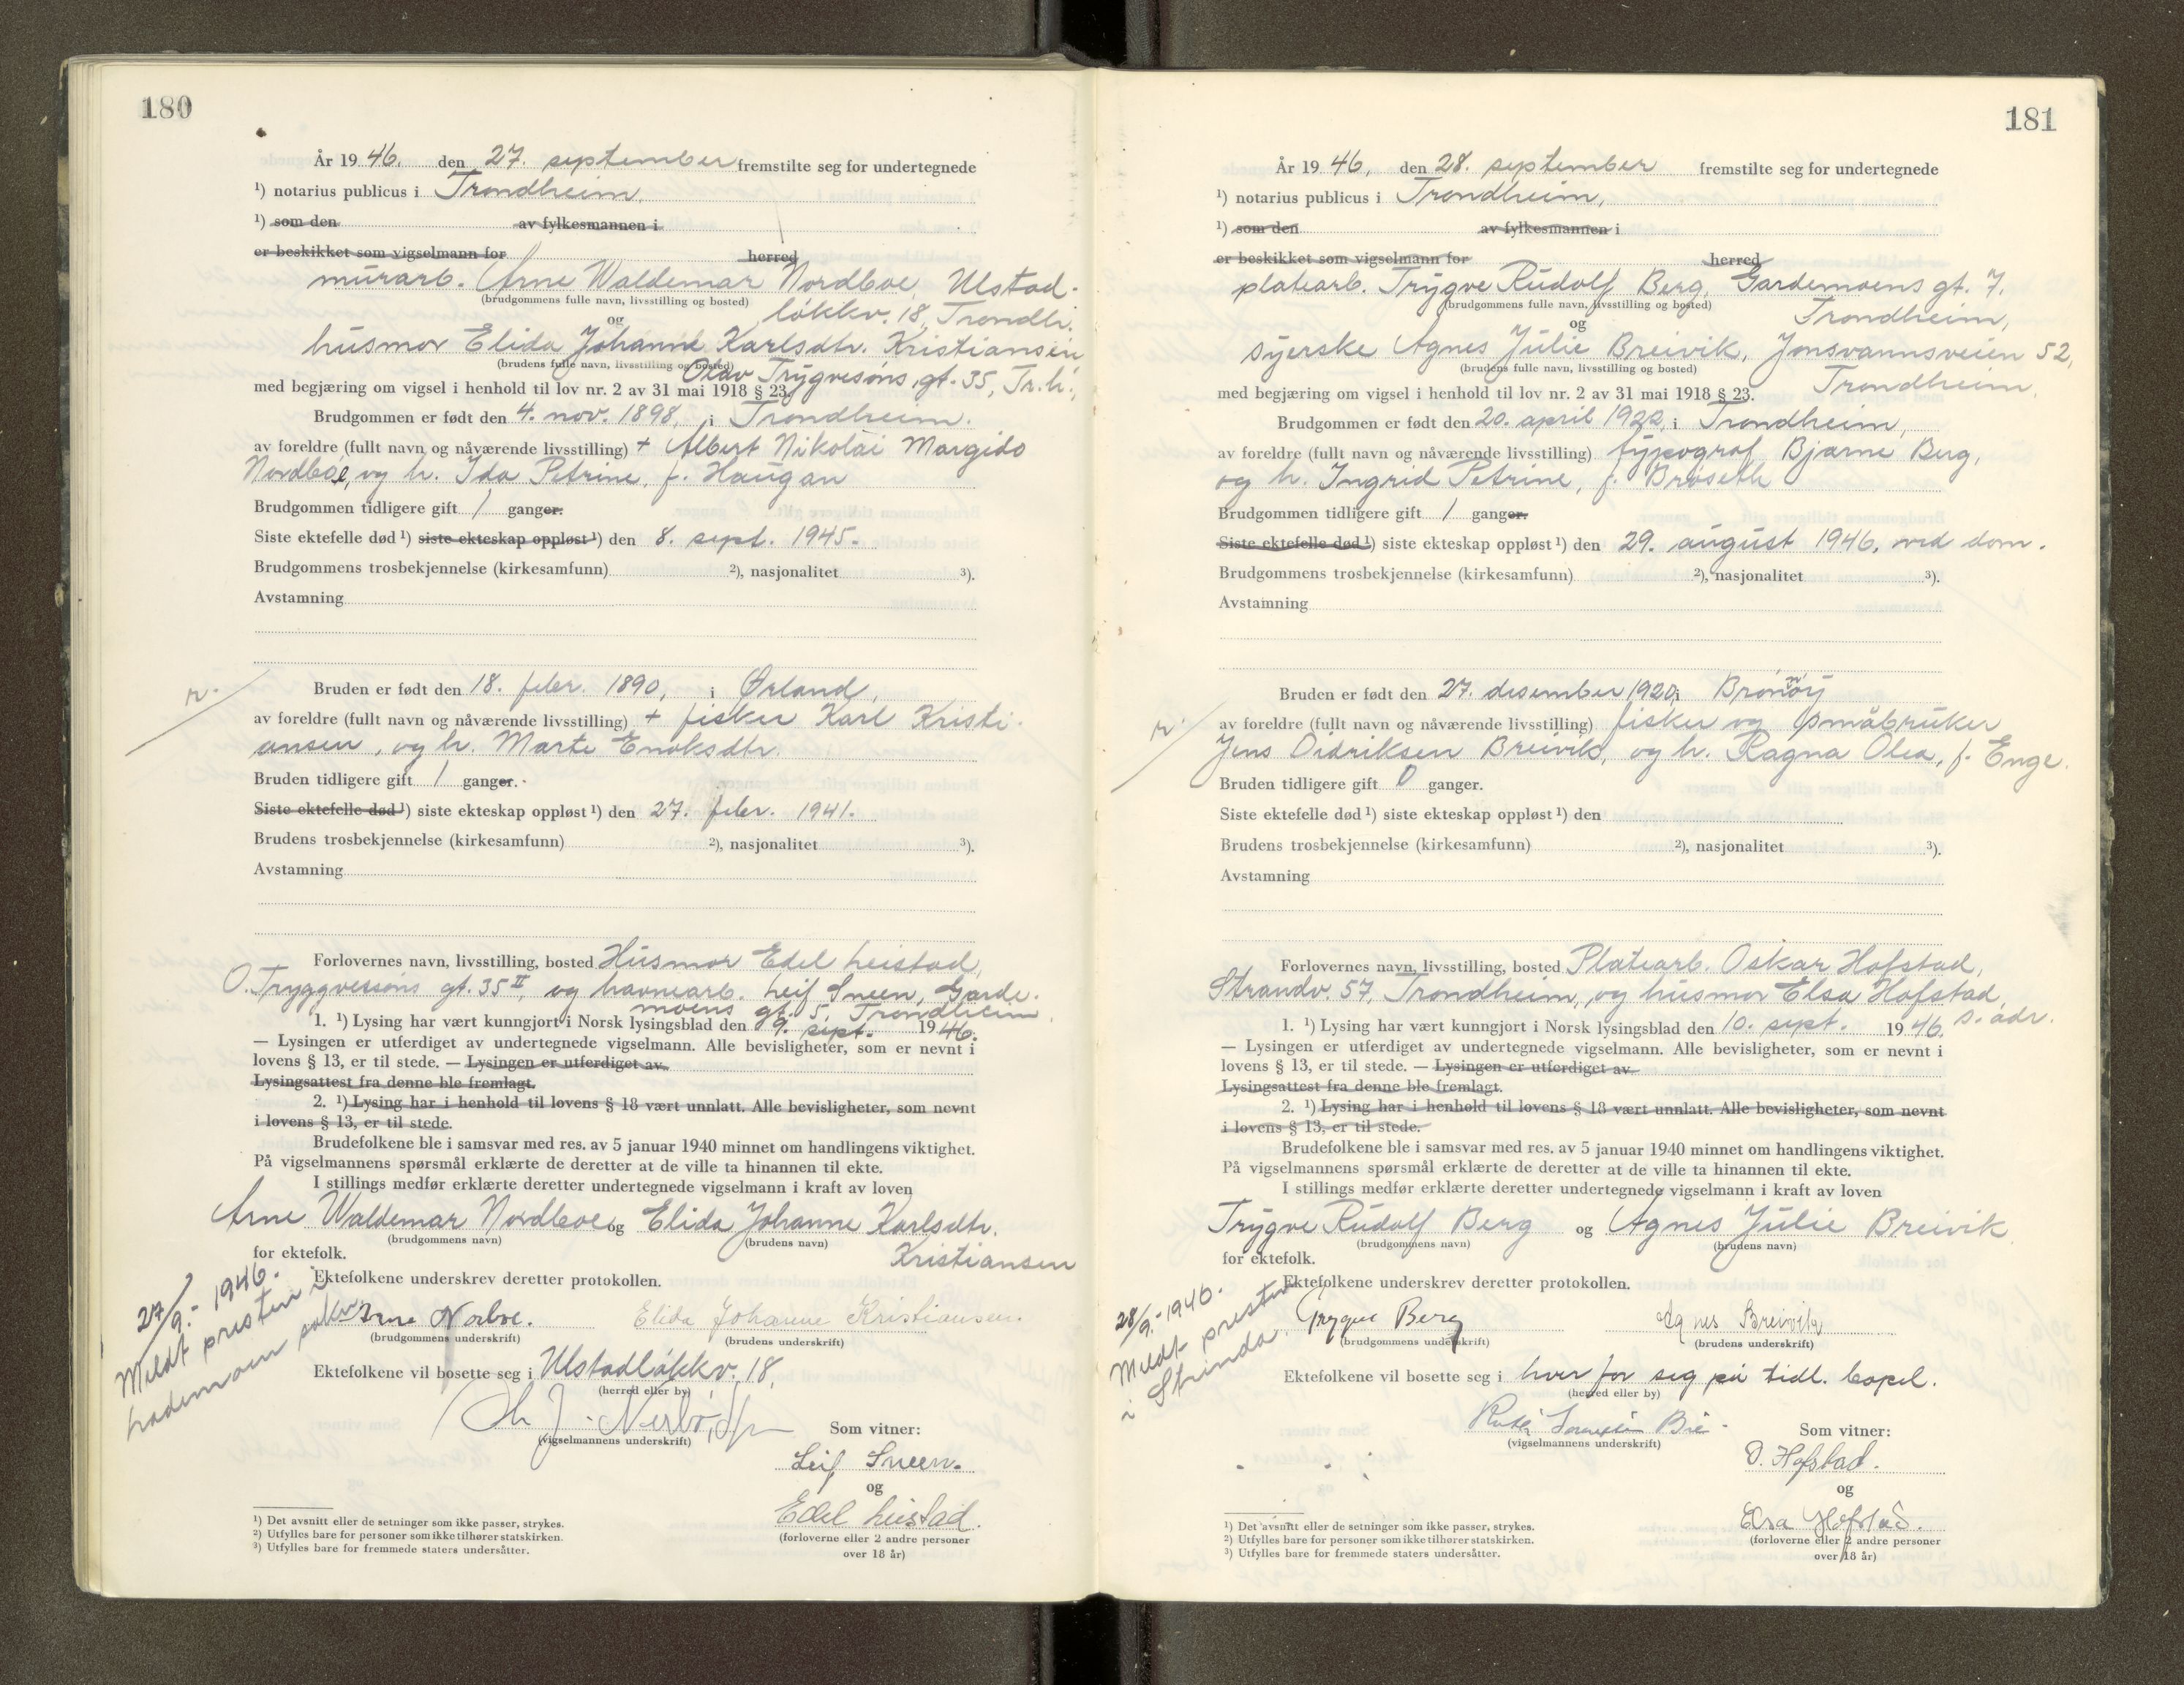 180
År 19 46. den 27. september fremstilte seg for undertegnede
¹) notarius publicus i Trondheim.
¹) som den av fylkesmannen i
er beskikket som vigselmann for herred
murarb. Arne Waldemar Nordboe, Ulstad-
(brudgommens fulle navn, livsstilling og bosted)
løkkv. 18, Trondh.
og
husmor Elida Johanne Karlsdtr. Kristiansen
(brudens fulle navn, livsstilling og bosted)
Olav Trygvesøns gt. 35, Tr.h.,
med begjæring om vigsel i henhold til lov nr. 2 av 31 mai 1918 § 23.
Brudgommen er født den 4. nov. 1898, i Trondheim.
av foreldre (fullt navn og nåværende livsstilling) + Albert Nikolai Margido
Nordboe, og h. Ida Petrine, f. Haugan
Brudgommen tidligere gift 1 ganger.
Siste ektefelle død ¹) siste ekteskap oppløst ¹) den 8. sept. 1945.
Brudgommens trosbekjennelse (kirkesamfunn) ²), nasjonalitet ³).
Avstamning
Bruden er født den 18. febr. 1890, i Ørland,
av foreldre (fullt navn og nåværende livsstilling) + fisker Karl Kristi-
ansen, og h. Marte Enoksdtr.
Bruden tidligere gift 1 ganger.
Siste ektefelle død ¹) siste ekteskap oppløst ¹) den 27. febr. 1941.
Brudens trosbekjennelse (kirkesamfunn) ²), nasjonalitet ³).
Avstamning
Forlovernes navn, livsstilling, bosted Husmor Edel Leistad,
O. Tryggvessøns gt. 35 II, og havnearb. Leif Sneen, Garde-
moens gt. 5, Trondheim.
1. ¹) Lysing har vært kunngjort i Norsk lysingsblad den 9. sept. 19 46.
— Lysingen er utferdiget av undertegnede vigselmann. Alle bevisligheter, som er nevnt i
lovens § 13, er til stede. — Lysingen er utferdiget av
Lysingsattest fra denne ble fremlagt.
2. ¹) Lysing har i henhold til lovens § 18 vært unnlatt. Alle bevisligheter, som nevnt
i lovens § 13, er til stede.
Brudefolkene ble i samsvar med res. av 5 januar 1940 minnet om handlingens viktighet.
På vigselmannens spørsmål erklærte de deretter at de ville ta hinannen til ekte.
I stillings medfør erklærte deretter undertegnede vigselmann i kraft av loven
Arne Waldemar Nordboe og Elida Johanne Karlsdtr.
(brudgommens navn) (brudens navn)
Kristiansen
for ektefolk.
Ektefolkene underskrev deretter protokollen.
27/9.- 1946.
Meldt presten i
Lademoen
Arne Norboe. Elida Johanne Kristiansen.
(brudgommens underskrift) (brudens underskrift)
Ektefolkene vil bosette seg i Ulstadløkkv. 18,
(herred eller by)
(vigselmannens underskrift)
Som vitner:
Leif Sneen.
og
Edel Leistad.
(forloverne eller 2 andre personer
over 18 år)
¹) Det avsnitt eller de setninger som ikke passer, strykes.
²) Utfylles bare for personer som ikke tilhører statskirken.
³) Utfylles bare for fremmede staters undersåtter.
181
År 19 46, den 28. september fremstilte seg for undertegnede
¹) notarius publicus i Trondheim,
¹) som den av fylkesmannen i
er beskikket som vigselmann for herred
platearb. Trygve Rudolf Berg, Gardemoens gt. 7,
(brudgommens fulle navn, livsstilling og bosted)
Trondheim,
og
syerske Agnes Julie Breivik, Jonsvannsveien 52,
(brudens fulle navn, livsstilling og bosted)
Trondheim,
med begjæring om vigsel i henhold til lov nr. 2 av 31 mai 1918 § 23.
Brudgommen er født den 20. april 1922, i Trondheim,
av foreldre (fullt navn og nåværende livsstilling) typograf Bjarne Berg,
og h. Ingrid Petrine, f. Brøseth
Brudgommen tidligere gift 1 ganger.
Siste ektefelle død ¹) siste ekteskap oppløst ¹) den 29. august 1946, ved dom.
Brudgommens trosbekjennelse (kirkesamfunn) ²), nasjonalitet ³).
Avstamning
Bruden er født den 27. desember 1920, i Brønnøy
av foreldre (fullt navn og nåværende livsstilling) fisker og småbruker
Jens Didriksen Breivik, og h. Ragna Olea, f. Enge.
Bruden tidligere gift 0 ganger.
Siste ektefelle død ¹) siste ekteskap oppløst ¹) den
Brudens trosbekjennelse (kirkesamfunn) ²), nasjonalitet ³).
Avstamning
Forlovernes navn, livsstilling, bosted Platearb. Oskar Hofstad,
Strandv. 57, Trondheim, og husmor Elsa Hofstad,
s. adr.
1. ¹) Lysing har vært kunngjort i Norsk lysingsblad den 10. sept. 19 46.
— Lysingen er utferdiget av undertegnede vigselmann. Alle bevisligheter, som er nevnt i
lovens § 13, er til stede. — Lysingen er utferdiget av
Lysingsattest fra denne ble fremlagt.
2. ¹) Lysing har i henhold til lovens § 18 vært unnlatt. Alle bevisligheter, som nevnt
i lovens § 13, er til stede.
Brudefolkene ble i samsvar med res. av 5 januar 1940 minnet om handlingens viktighet.
På vigselmannens spørsmål erklærte de deretter at de ville ta hinannen til ekte.
I stillings medfør erklærte deretter undertegnede vigselmann i kraft av loven
Trygve Rudolf Berg og Agnes Julie Breivik
(brudgommens navn) (brudens navn)
for ektefolk.
Ektefolkene underskrev deretter protokollen.
28/9.-1946.
Meldt presten
i Strinda
Trygve Berg Agnes Breivik
(brudgommens underskrift) (brudens underskrift)
Ektefolkene vil bosette seg i hver for seg på tidl. bopel.
(herred eller by)
(vigselmannens underskrift)
Som vitner:
O. Hofstad.
og
Elsa Hofstad.
(forloverne eller 2 andre personer
over 18 år)
¹) Det avsnitt eller de setninger som ikke passer, strykes.
²) Utfylles bare for personer som ikke tilhører statskirken.
³) Utfylles bare for fremmede staters undersåtter.